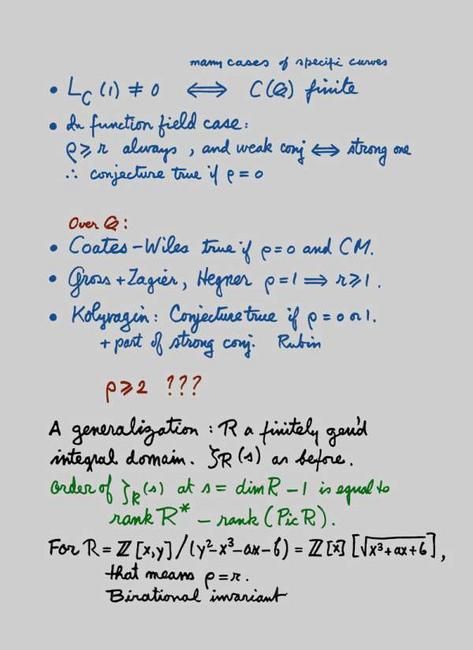 many cases of specific curves
• L_C(1) ≠ 0 ⟺ C(Q) finite
• In function field case:
ρ ≥ r always, and weak conj ⟺ strong one
∴ conjecture true if ρ = 0
Over Q:
• Coates-Wiles true if ρ = 0 and CM.
• Gross + Zagier, Hegner ρ = 1 ⟹ r ≥ 1.
• Kolyvagin: Conjecture true if ρ = 0 or 1.
+ part of strong conj. Rubin
ρ ≥ 2 ???
A generalization: R a finitely gen'd
integral domain. ζR(s) as before.
Order of ζR(s) at s = dim R - 1 is equal to
rank R* - rank (Pic R).
For R = Z[x,y]/(y²-x³-ax-b) = Z[x][√x³+ax+b],
that means ρ = r.
Birational invariant